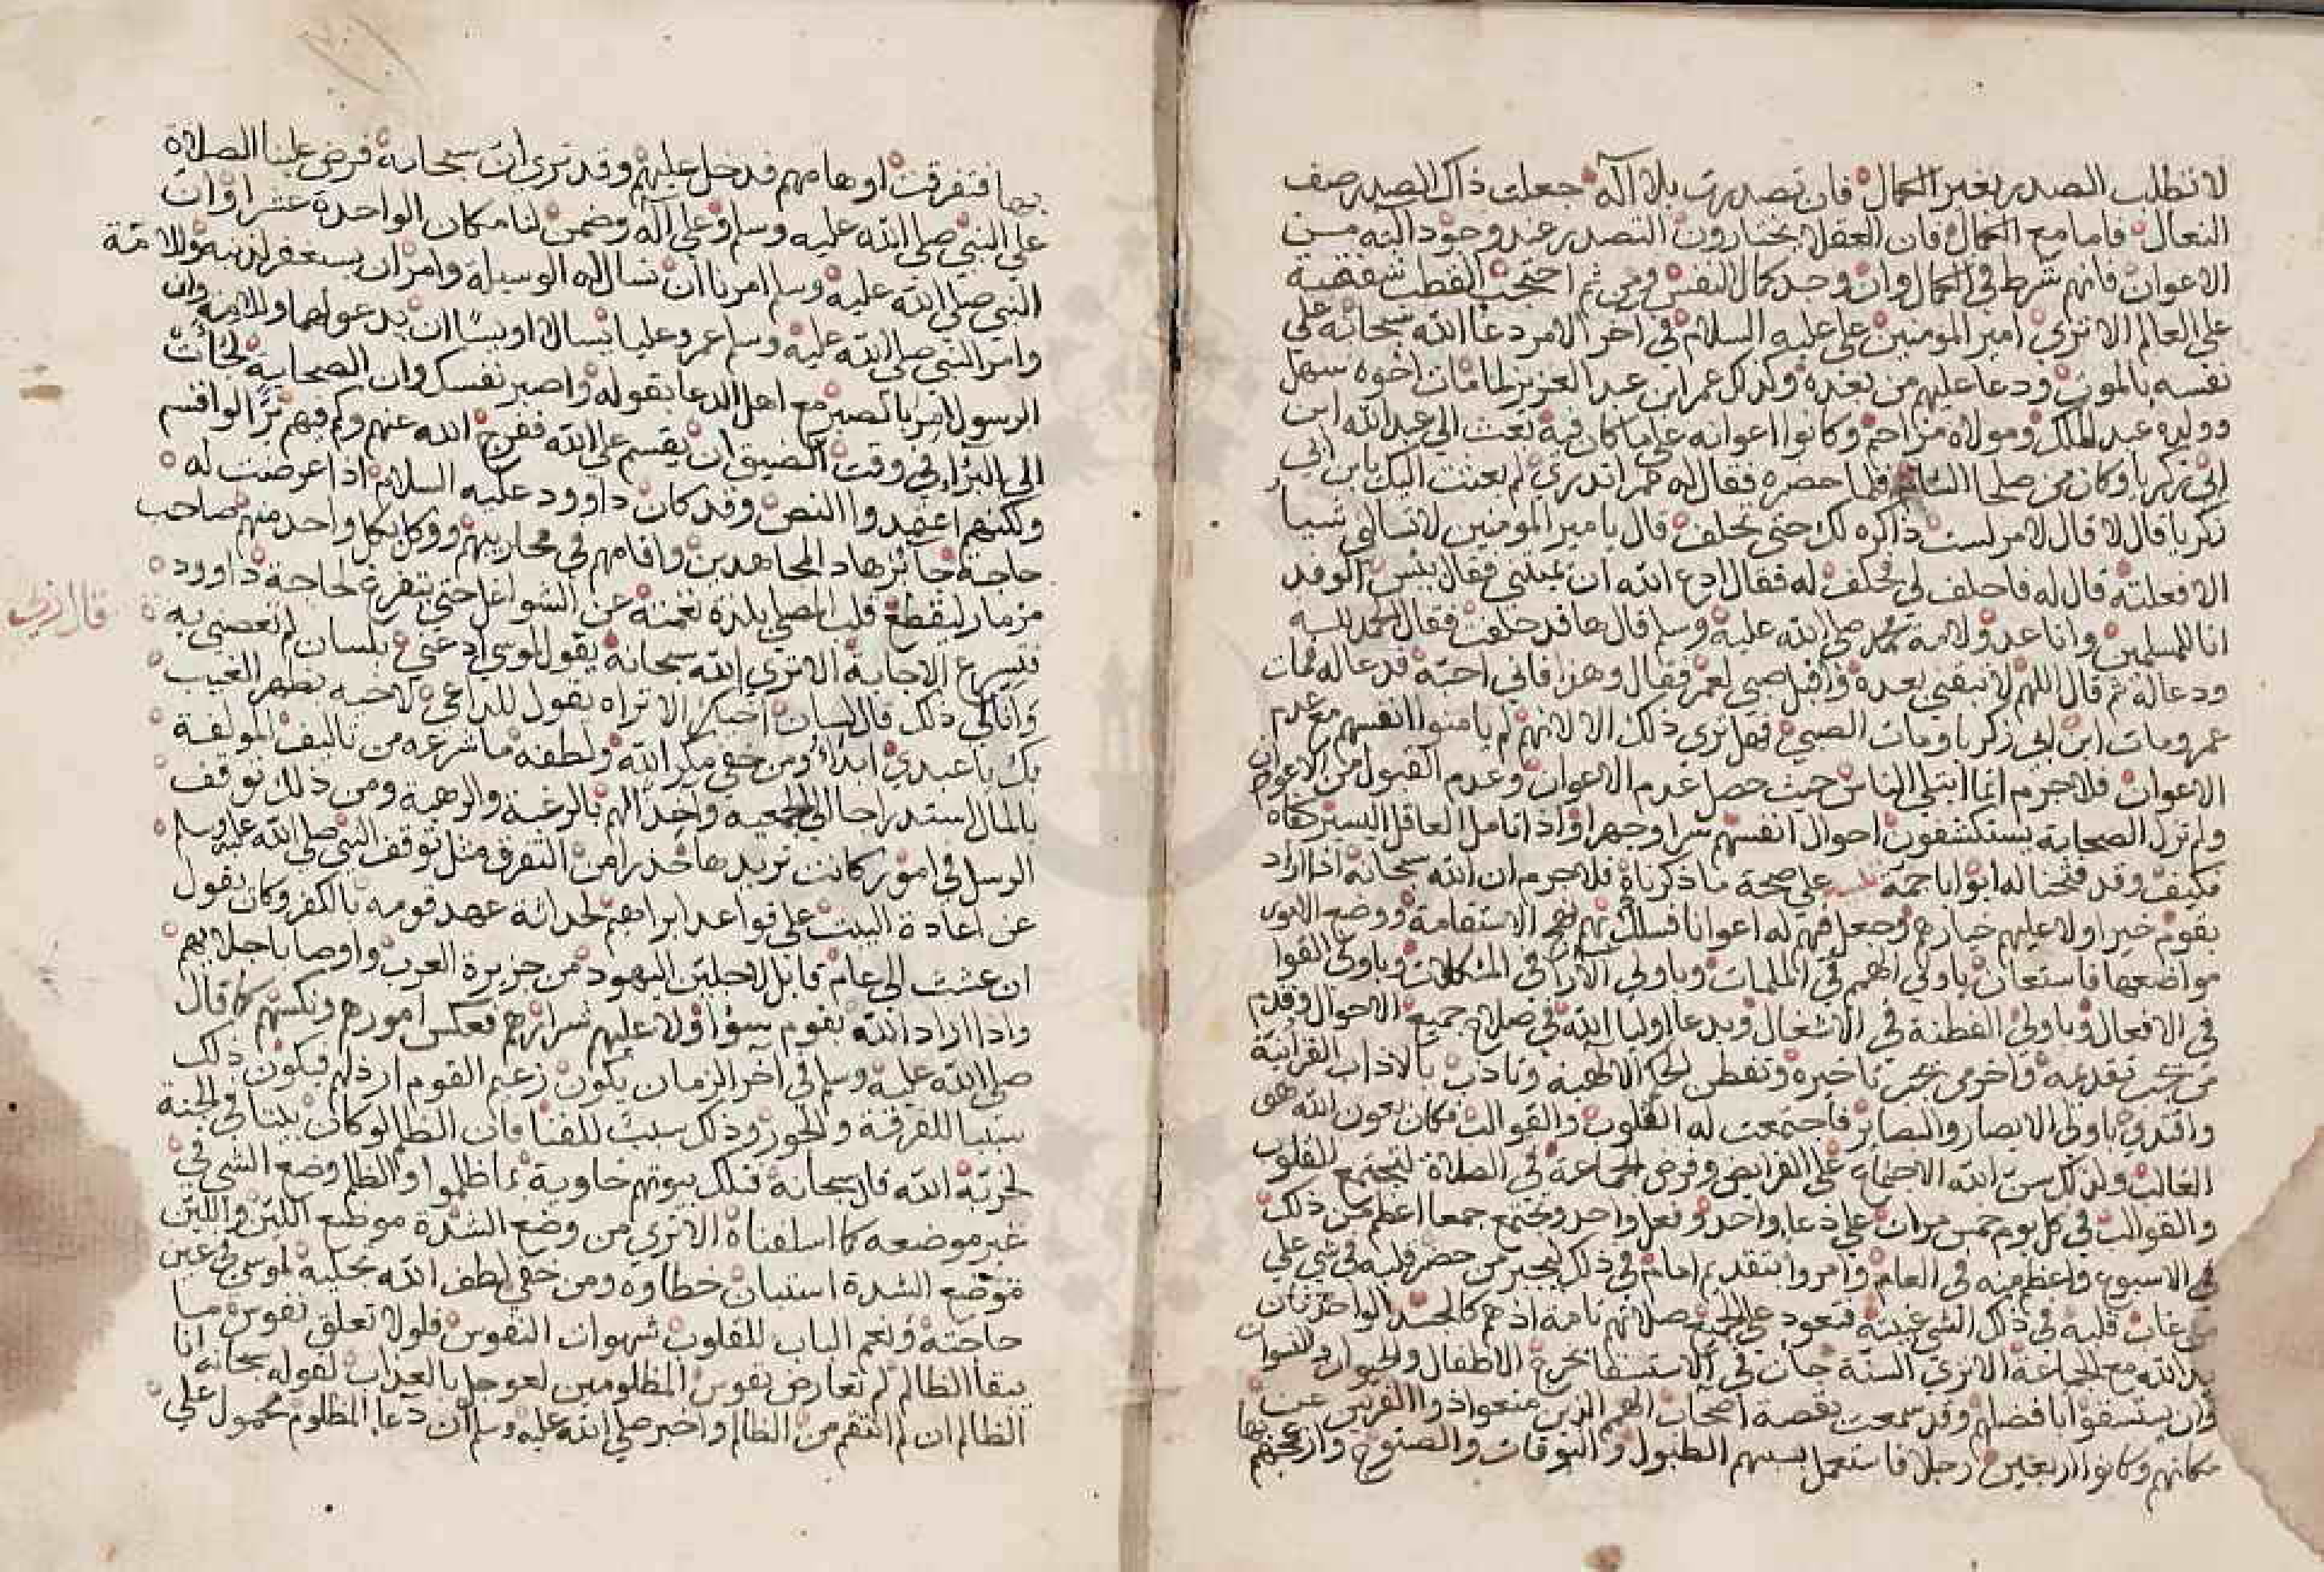 لا تطلب الصدر بغير الكمال فان تصدرت بلا آله جعلت ذاك الصدر صف
النعال فاما مع الكمال فان العقلا يختارون التصدر عند وجود آلته من
الاعوان فانهم شرط في الكمال وان وجد كمال النفس ومن ثم احتجب القطب شفقة
على العالم الا ترى امير المومنين على عليه السلام في اخر الامر دعا الله سبحانه على
نفسه بالموت ودعا عليهم من بعده وكذلك عمر ابن عبد العزيز لما مات اخوه سهل
وولده عبد الملك ومولاه مزاحم وكانوا اعوانه على ما كان فيه بعث الى عبد الله ابن
ابي زكريا وكان من صلحا الشام فلما حضره فقال له عمر اتدري لم بعثت اليك يابن ابي
زكريا قال لا قال لامر لست ذاكره لك حتى تحلف قال يا مير المومنين لا تسالني شيا
الا فعلته قال له فاحلف لي فحلف له فقال ادع الله ان يميتني فقال بيس الوفد
انا للمسلمين وانا عدو لامة محمد صلى الله عليه وسلم قال ها قد حلفت فقال الحمد لله
ودعا له ثم قال اللهم لا تبقني بعده واقبل صبي لعمر فقال وهذا فاني احبه فدعا له فمات
عمر ومات ابن ابي زكريا ومات الصبي فهل ترى ذلك الا لانهم لم يامنوا انفسهم مع عدم
الاعوان فلا جرم انما ابتلي الناس حيث حصل عدم الاعوان وعدم القبول من الاعوان
ولم تزل الصحابة يستكشفون احوال انفسهم سرا وجهرا واذا تامل العاقل اليسير كفاه
فكيف وقد فتحنا له ابوابا جمة على صحة ما ذكرناه فلا جرم ان الله سبحانه اذا اراد
بقوم خيرا ولا عليهم خيارهم وجعل فيهم له اعوانا فسلك بهم نهج الاستقامة ووضع الامور
مواضعها فاستعان باولي الهمم في الملمات وباولي الارا في المشكلات وباولي القوا
في الافعال وباولي الفطنة في الاشغال وبدعا اوليا الله في صلاح جميع الاحوال وقدم
من تقدمه واخر من تاخيره وتفطن لحكم الالهية وتادب بالاداب القرانية
واقتدى باولي الابصار والبصاير فاجتمعت له القلوب والقوالب فكان بعون الله هو
الغالب ولذلك سن الله الاجتماع على الفرايض وفرض الجماعة في الصلاة لتجتمع القلوب
والقوالب في كل يوم خمس مرات على دعا واحد وفعل واحد وتجتمع جمعا اعظم من ذلك
في الاسبوع واعظم منه في العام وامروا بتقديم امام في ذلك ليجبر من حضر قلبه في شي على
من غاب قلبه في ذلك الشي غيبته فتعود على الجميع صلاتهم تامة اذ هم كالجسد الواحد فان
يد الله مع الجماعة الا ترى السنة جات في الاستسقا تخرج الاطفال والحيوان والنسوان
وان يستسقوا بافضلهم وقد سمعت بقصة اصحاب الهمم الذين منعوا ذو القرنين عن
مكانهم وكانوا اربعين رجلا فاستعمل بسببهم الطبول والبوقات والصنوج وازعجهم بها
بها فتفرقت اوهامهم فدخل عليهم وقد ترى ان سبحانه فرض علينا الصلاة
على النبي صلى الله عليه وسلم وعلى آله وضمن لنا مكان الواحدة عشرا وان
النبي صلى الله عليه وسلم امرنا ان نسال له الوسيلة وامر ان يستغفر لذنبه وللامة
وامر النبي صلى الله عليه وسلم عمر وعليا يسالا اويسا ان يدعو لهما وللامة وان
الرسول امر بالصبر مع اهل الدعا بقوله واصبر نفسك وان الصحابة لجات
الى البراء في وقت الضيق ان يقسم على الله ففرج الله عنهم وكم فيهم برا لو اقسم
ولكنهم اعتمدوا النص وقد كان داوود عليه السلام اذا عرضت له
حاجة جا بزهاد المجاهدين واقامهم في محاريبهم ووكل بكل واحد منهم صاحب
مزمار ليقطع قلب المصلي بلذة نغمته عن الشواغل حتى يتفرغ لحاجة داوود
فتسرع الاجابة الا ترى الله سبحانه يقول لموسى ادعني بلسان لم تعصني به
وانا لي ذلك قال لسان اخيك الا تراه يقول للداعي لاخيه بظهر الغيب
بك يا عبدي ابدأ ومن خفي مكر الله ولطفه ما شرعه من تاليف المولفة
بالمال استدراجا الى الجمعيه واخذا لهم بالرغبة والرهبة ومن ذلك توقف
الرسل في امور كانت تريدها حذرا من التفرق مثل توقف النبي صلى الله عليه وسلم
عن اعادة البيت على قواعد ابراهيم لحداثة عهد قومه بالكفر وكان يقول
ان عشت الى عام قابل لاجلين اليهود من جزيرة العرب واوصا باجلايهم
واذا اراد الله بقوم سوا ولا عليهم شرارهم فعكس امورهم ونكسهم كما قال
صلى الله عليه وسلم في آخر الزمان يكون زعيم القوم ارذلهم فيكون ذلك
سببا للفرقة والجور وذلك سبب للفنا فان الظلم لو كان بيتا في الجنة
لخربه الله قال سبحانه فتلك بيوتهم خاوية بما ظلموا والظلم وضع الشي في
غير موضعه كما اسلفناه الا ترى من وضع الشدة موضع اللين واللين
موضع الشدة استبان خطاوه ومن خفي لطف الله تجليه لموسى في عين
حاجته ونعم الباب للقلوب شهوات النفوس فلولا تعلق نفوس ما
ببقا الظالم لم تعارض نفوس المظلومين لعوجل بالعذاب لقوله سبحانه انا
الظالم ان لم انتقم من الظالم واخبر صلى الله عليه وسلم ان دعا المظلوم محمول على